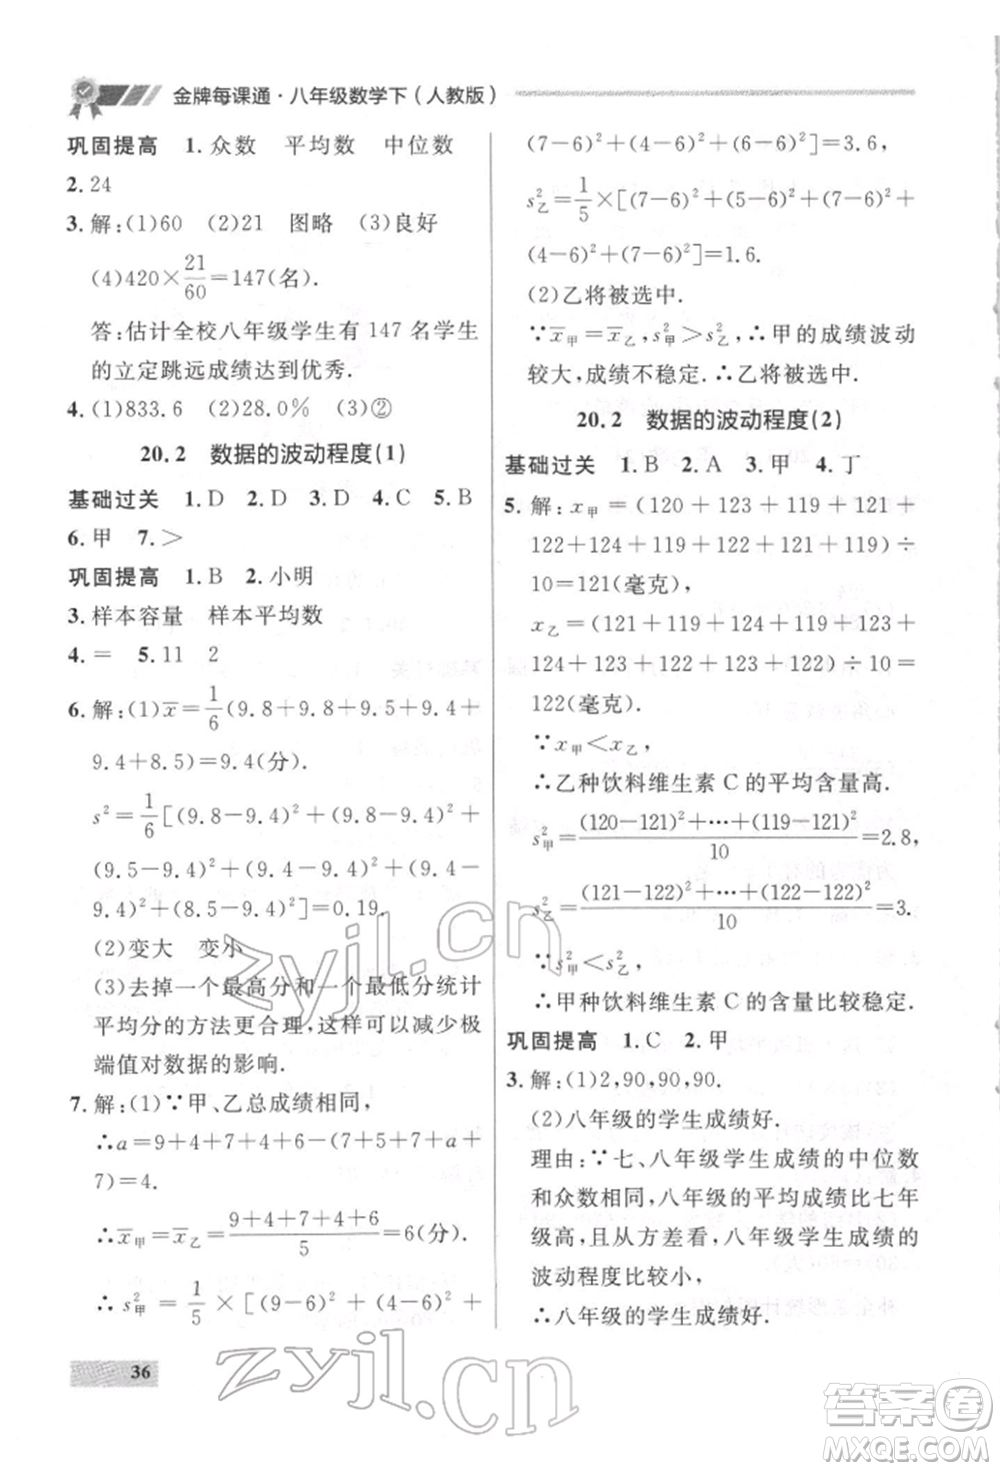 金牌每课通·八年级数学下(人教版)
巩固提高 1.众数 平均数 中位数
2.24
3.解:(1)60 (2)21 图略 (3)良好
(4)420×21/60=147(名).
答:估计全校八年级学生有 147 名学生
的立定跳远成绩达到优秀.
4.(1)833.6 (2)28.0% (3)②
20.2 数据的波动程度(1)
基础过关 1.D 2.D 3.D 4.C 5.B
6.甲 7.>
巩固提高 1.B 2.小明
3.样本容量 样本平均数
4.= 5.11 2
6.解:(1)x̅=1/6(9.8+9.5+9.4+
9.4+8.5)=9.4(分).
s²=1/6[(9.8-9.4)²+(9.8-9.4)²+
(9.5-9.4)²+(9.4-9.4)²+(9.4-
9.4)²+(8.5-9.4)²]=0.19.
(2)变大 变小
(3)去掉一个最高分和一个最低分统计
平均分的方法更合理,这样可以减少极
端值对数据的影响.
7.解:(1)∵甲、乙总成绩相同,
∴a=9+4+7+4+6-(7+5+7+a+
7)=4.
∴x̅甲=x̅乙=(9+4+7+4+6)/5=6(环),
∴s²甲=1/5×[(9-6)²+(4-6)²+
(7-6)²+(4-6)²+(6-6)²]=3.6,
s²乙=1/5×[(7-6)²+(5-6)²+(7-6)²+
(4-6)²+(7-6)²]=1.6.
(2)乙将被选中.
∵x̅甲=x̅乙,s²甲>s²乙,∴甲的成绩波动
较大,成绩不稳定.∴乙将被选中.
20.2 数据的波动程度(2)
基础过关 1.B 2.A 3.甲 4.丁
5.解:x甲=(120+123+119+121+
122+124+119+122+121+119)÷
10=121(毫克),
x乙=(121+119+124+119+123+
124+123+122+123+122)÷10=
122(毫克).
∵x甲<x乙,
∴乙种饮料维生素 C 的平均含量高.
s²甲=((120-121)²+…+(119-121)²)/10=2.8,
s²乙=((121-122)²+…+(122-122)²)/10=3.
∵s²甲<s²乙,
∴甲种饮料维生素 C 的含量比较稳定.
巩固提高 1.C 2.甲
3.解:(1)2,90,90,90.
(2)八年级的学生成绩好.
理由:∵七、八年级学生成绩的中位数
和众数相同,八年级的平均成绩比七年
级高,且从方差看,八年级学生成绩的
波动程度比较小,
∴八年级的学生成绩好.
36
zyjl.cn
zyjl.cn
答案圈
MXQE.COM